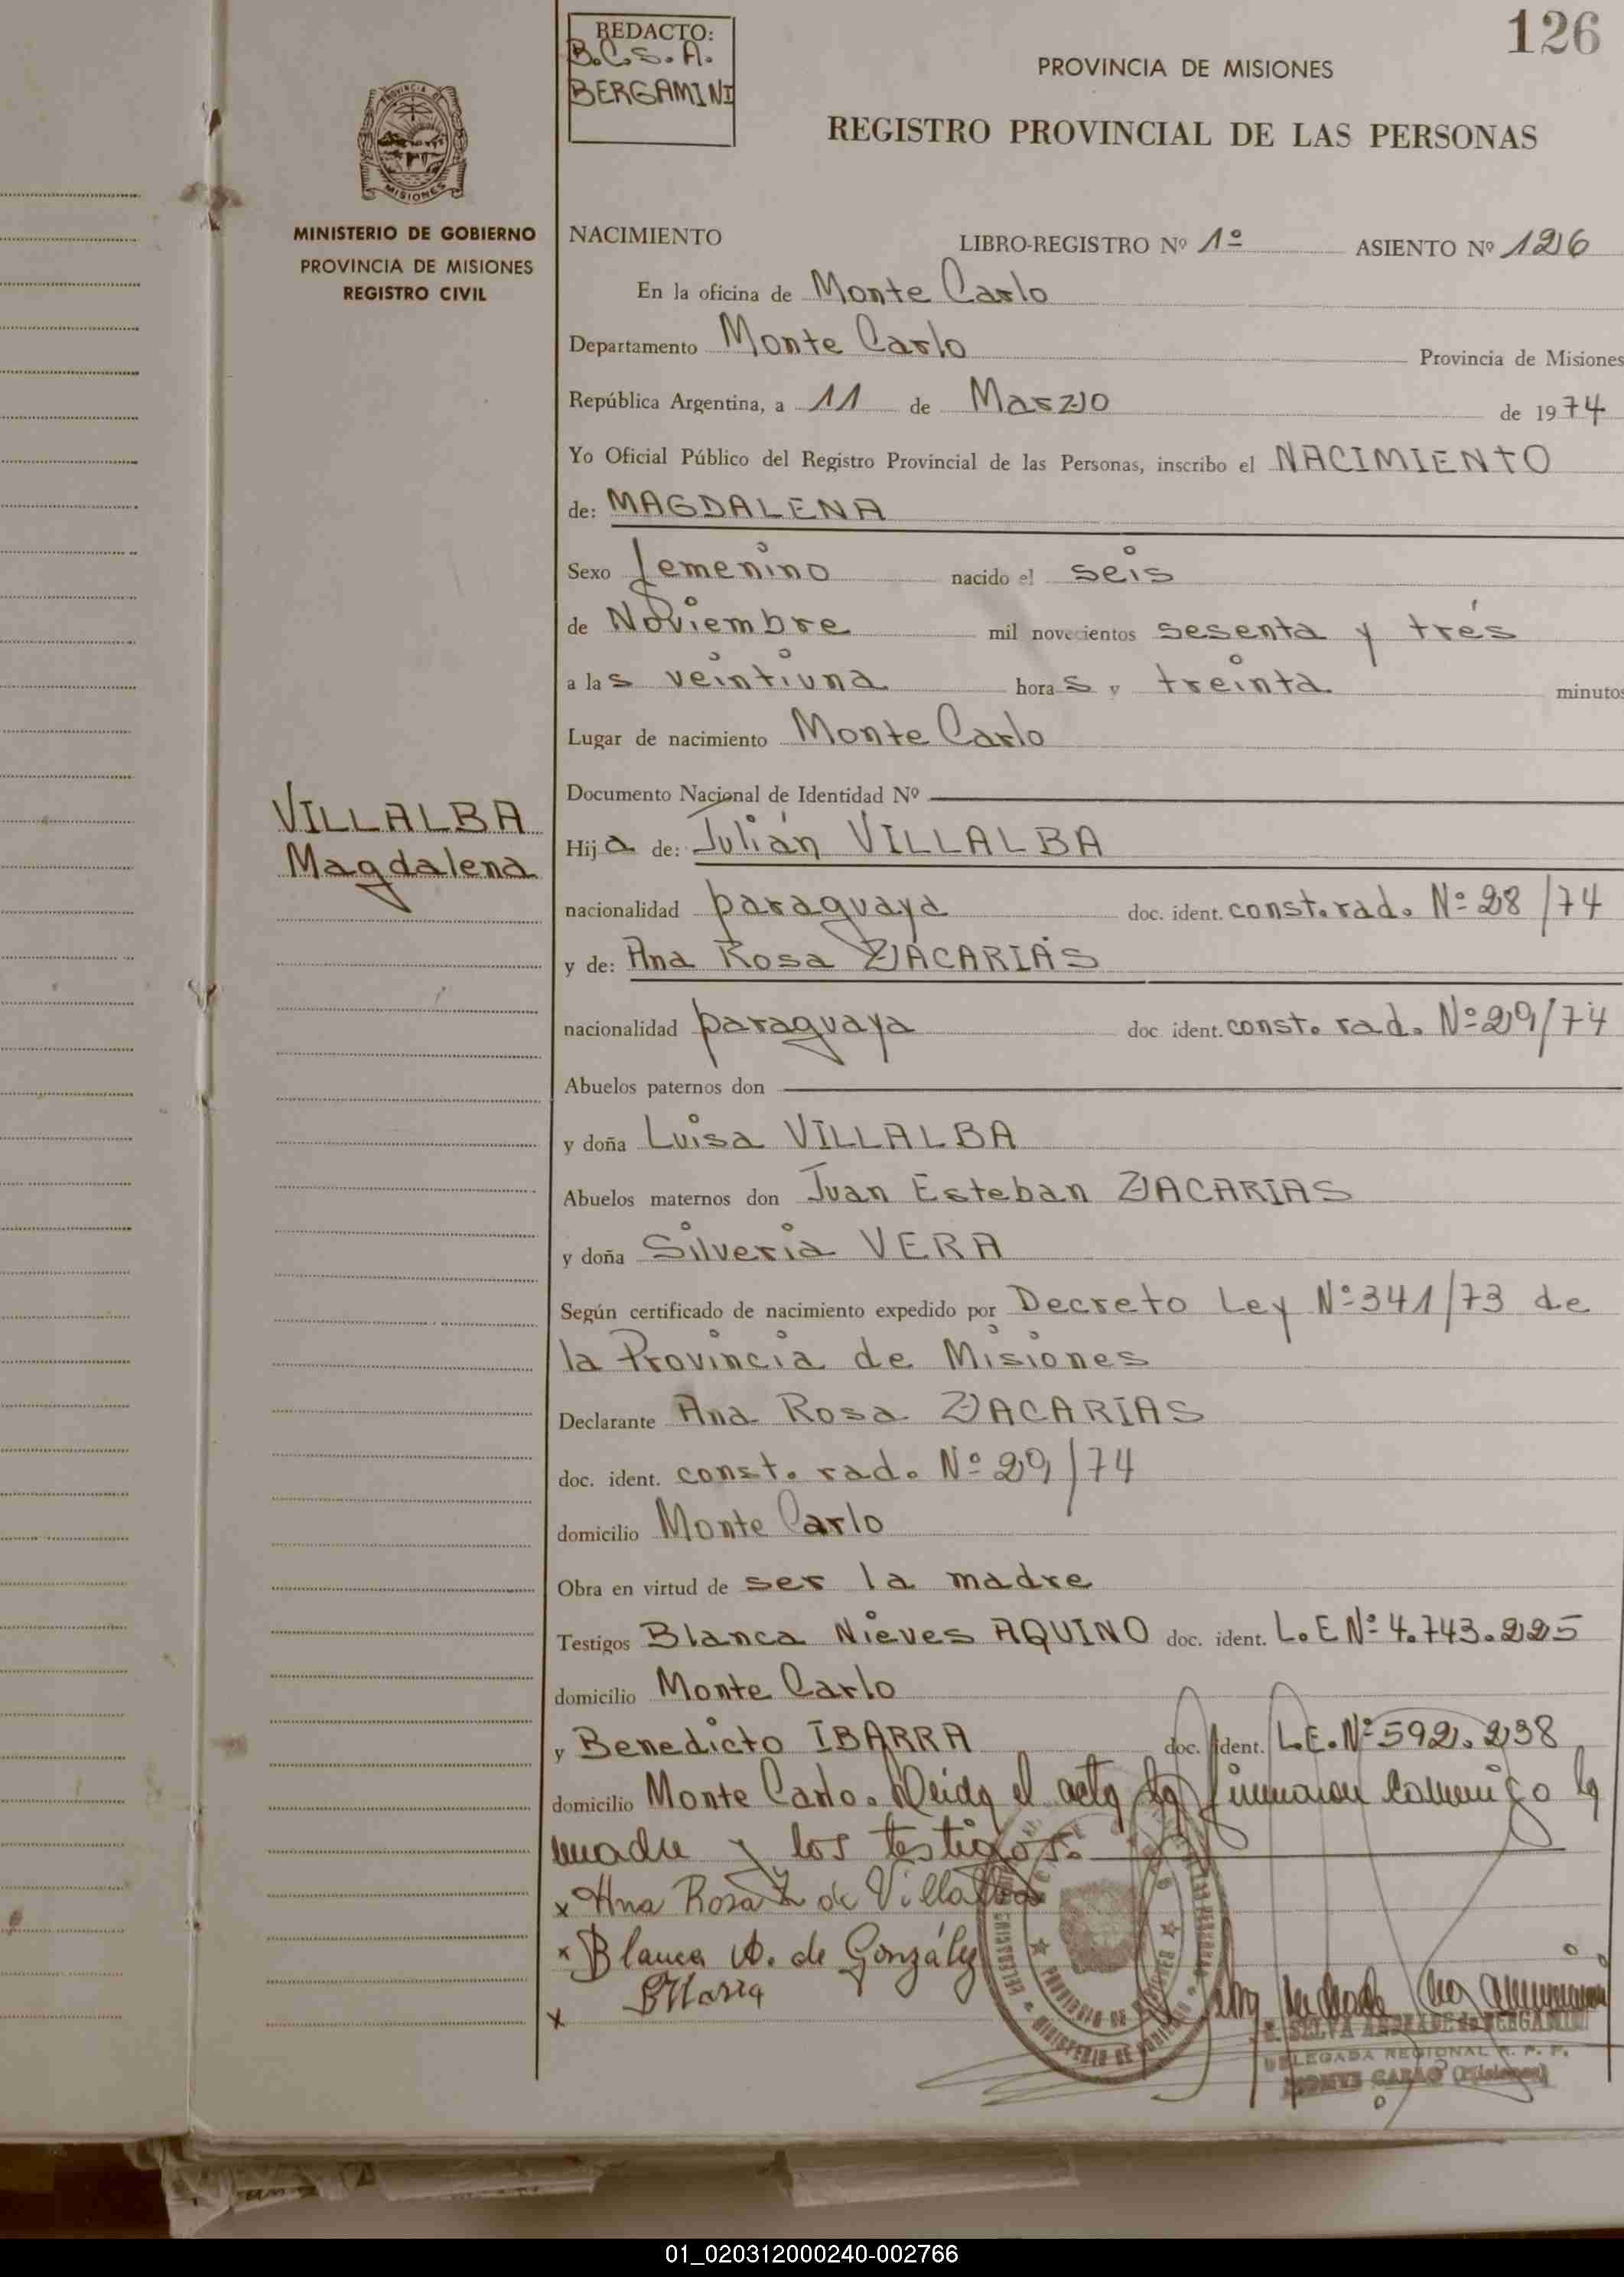 126
REDACTO:
B.C.S.A.
BERGAMINI
PROVINCIA DE MISIONES
REGISTRO PROVINCIAL DE LAS PERSONAS
PROVINCIA DE
MISIONES
MINISTERIO DE GOBIERNO
PROVINCIA DE MISIONES
REGISTRO CIVIL
NACIMIENTO LIBRO-REGISTRO Nº 1º ASIENTO Nº 126
En la oficina de Monte Carlo
Departamento Monte Carlo Provincia de Misiones
República Argentina, a 11 de Marzo de 1974
Yo Oficial Público del Registro Provincial de las Personas, inscribo el NACIMIENTO
de: MAGDALENA
Sexo femenino nacido el seis
de Noviembre mil novecientos sesenta y trés
a las veintiuna horas y treinta minutos
Lugar de nacimiento Monte Carlo
Documento Nacional de Identidad Nº
VILLALBA
Magdalena
Hija de: Julián VILLALBA
nacionalidad paraguaya doc. ident. const. rad. Nº 28/74
y de: Ana Rosa ZACARIAS
nacionalidad paraguaya doc. ident. const. rad. Nº 29/74
Abuelos paternos don
y doña Luisa VILLALBA
Abuelos maternos don Juan Esteban ZACARIAS
y doña Silveria VERA
Según certificado de nacimiento expedido por Decreto Ley Nº 341/73 de
la Provincia de Misiones
Declarante Ana Rosa ZACARIAS
doc. ident. const. rad. Nº 29/74
domicilio Monte Carlo
Obra en virtud de ser la madre
Testigos Blanca Nieves AQUINO doc. ident. L.E Nº 4.743.225
domicilio Monte Carlo
y Benedicto IBARRA doc. ident. L.E. Nº 592.238
domicilio Monte Carlo. Leida el acta la firmaron conmigo la
madre y los testigos.
x Ana Rosa Z de Villalba
x Blanca A. de Gonzálz
x
PROVINCIA DE MISIONES
MINISTERIO DE GOBIERNO
SELVA ANDRADE de BERGAMINI
DELEGADA REGIONAL R. P. P.
MONTE CARLO (Misiones)
01_020312000240-002766